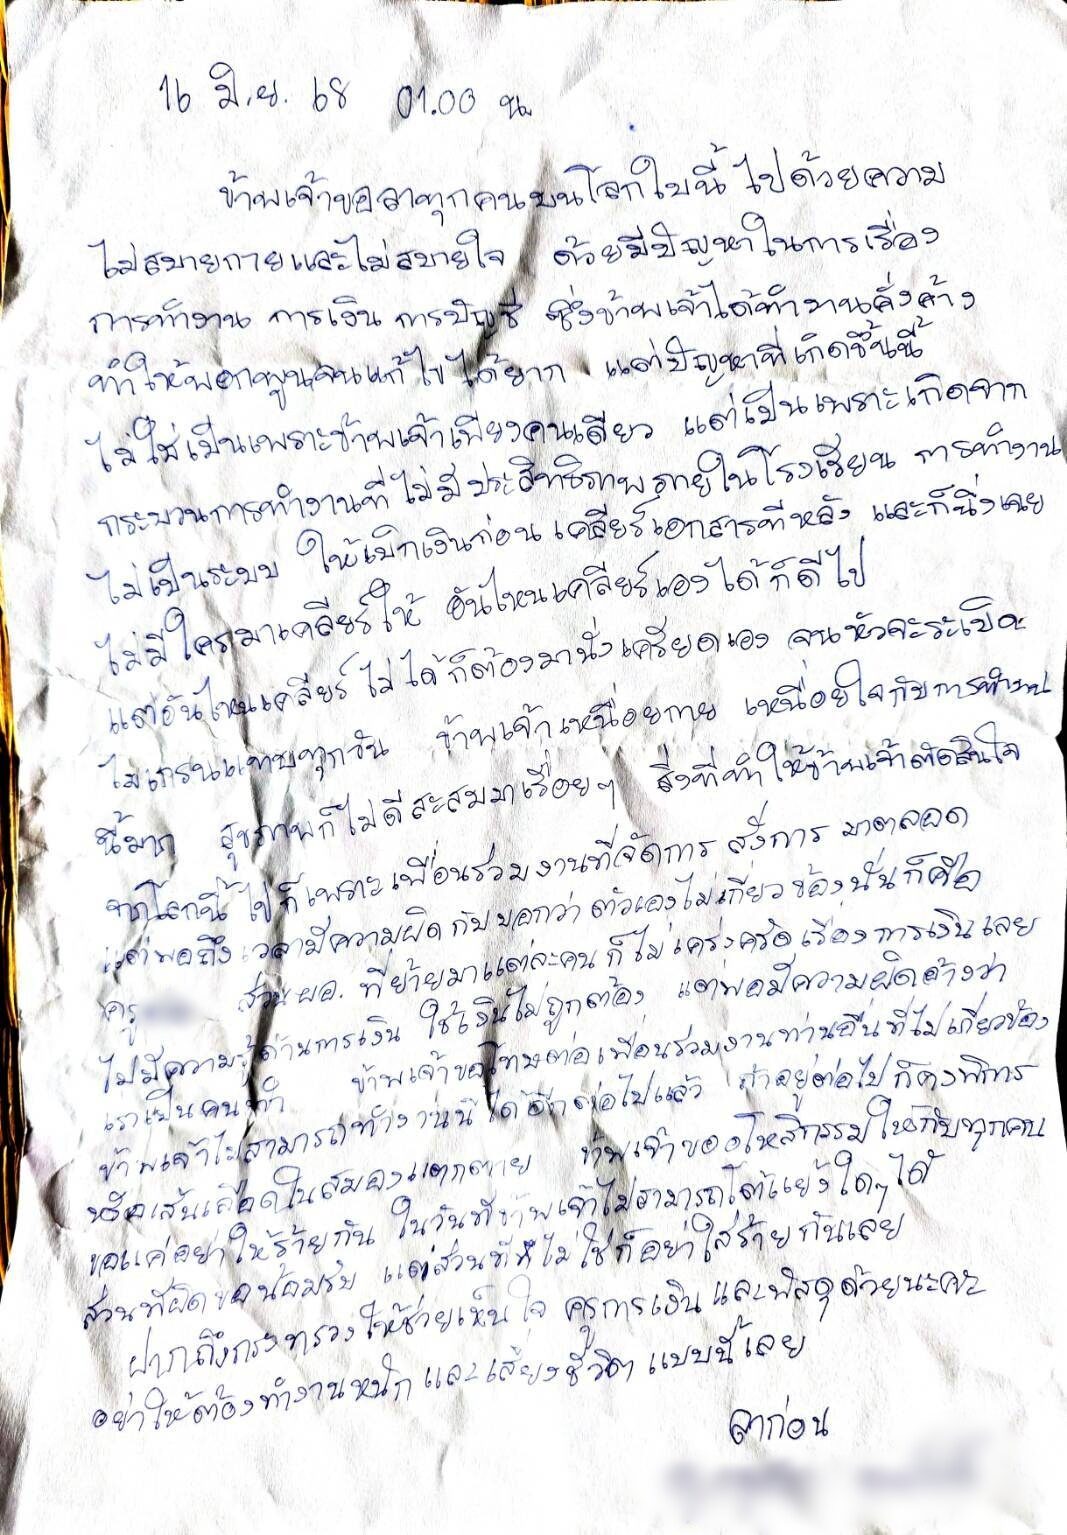 16 มิ.ย. 68 01.00 น.
ข้าพเจ้าขอลาทุกคนบนโลกใบนี้ ไปด้วยความ
ไม่สบายกายและไม่สบายใจ ด้วยมีปัญหาในการเรื่อง
การทำงาน การเงิน การบัญชี ซึ่งข้าพเจ้าได้ทำงานคั่งค้าง
ทำให้พอกพูนจนแก้ไขได้ยาก แต่ปัญหาที่เกิดขึ้นนี้
ไม่ใช่เป็นเพราะข้าพเจ้าเพียงคนเดียว แต่เป็นเพราะเกิดจาก
กระบวนการทำงานที่ไม่มีประสิทธิภาพภายในโรงเรียน การทำงาน
ไม่เป็นระบบ ให้เบิกเงินก่อน เคลียร์เอกสารทีหลัง และก็นิ่งเฉย
ไม่มีใครมาเคลียร์ให้ อันไหนเคลียร์เองได้ก็ดีไป
แต่อันไหนเคลียร์ไม่ได้ก็ต้องมานั่งเครียดเอง จนหัวจะระเบิด
ไมเกรนแทบทุกวัน ข้าพเจ้าเหนื่อยกาย เหนื่อยใจกับการทำงาน
นี้มาก สุขภาพก็ไม่ดีสะสมมาเรื่อยๆ สิ่งที่ทำให้ข้าพเจ้าตัดสินใจ
จากโลกนี้ไปก็เพราะเพื่อนร่วมงานที่จัดการ สั่งการ มาตลอด
แต่พอถึงเวลามีความผิดกับบอกว่า ตัวเองไม่เกี่ยวข้องนั่นก็คือ
ครู ส่วน ผอ. ที่ย้ายมาแต่ละคนก็ไม่เคร่งครัดเรื่องการเงินเลย
ไม่มีความรู้ด้านการเงิน ใช้เงินไม่ถูกต้อง แต่พอมีความผิดอ้างว่า
เราเป็นคนทำ ข้าพเจ้าขอโทษต่อเพื่อนร่วมงานท่านอื่นที่ไม่เกี่ยวข้อง
ข้าพเจ้าไม่สามารถทำงานนี้ได้อีกต่อไปแล้ว ถ้าอยู่ต่อไปก็คงพิการ
หรือเส้นเลือดในสมองแตกตาย ข้าพเจ้าขออโหสิกรรมให้กับทุกคน
ขอแค่อย่าให้ร้ายกัน ในวันที่ข้าพเจ้าไม่สามารถโต้แย้งใดๆได้
ส่วนที่ผิดขอน้อมรับ แต่ส่วนที่ไม่ใช่ก็อย่าใส่ร้ายกันเลย
ฝากถึงกระทรวงให้ช่วยเห็นใจ ครูการเงิน และพัสดุด้วยนะคะ
อย่าให้ต้องทำงานหนักและเสี่ยงชีวิต แบบนี้เลย
ลาก่อน